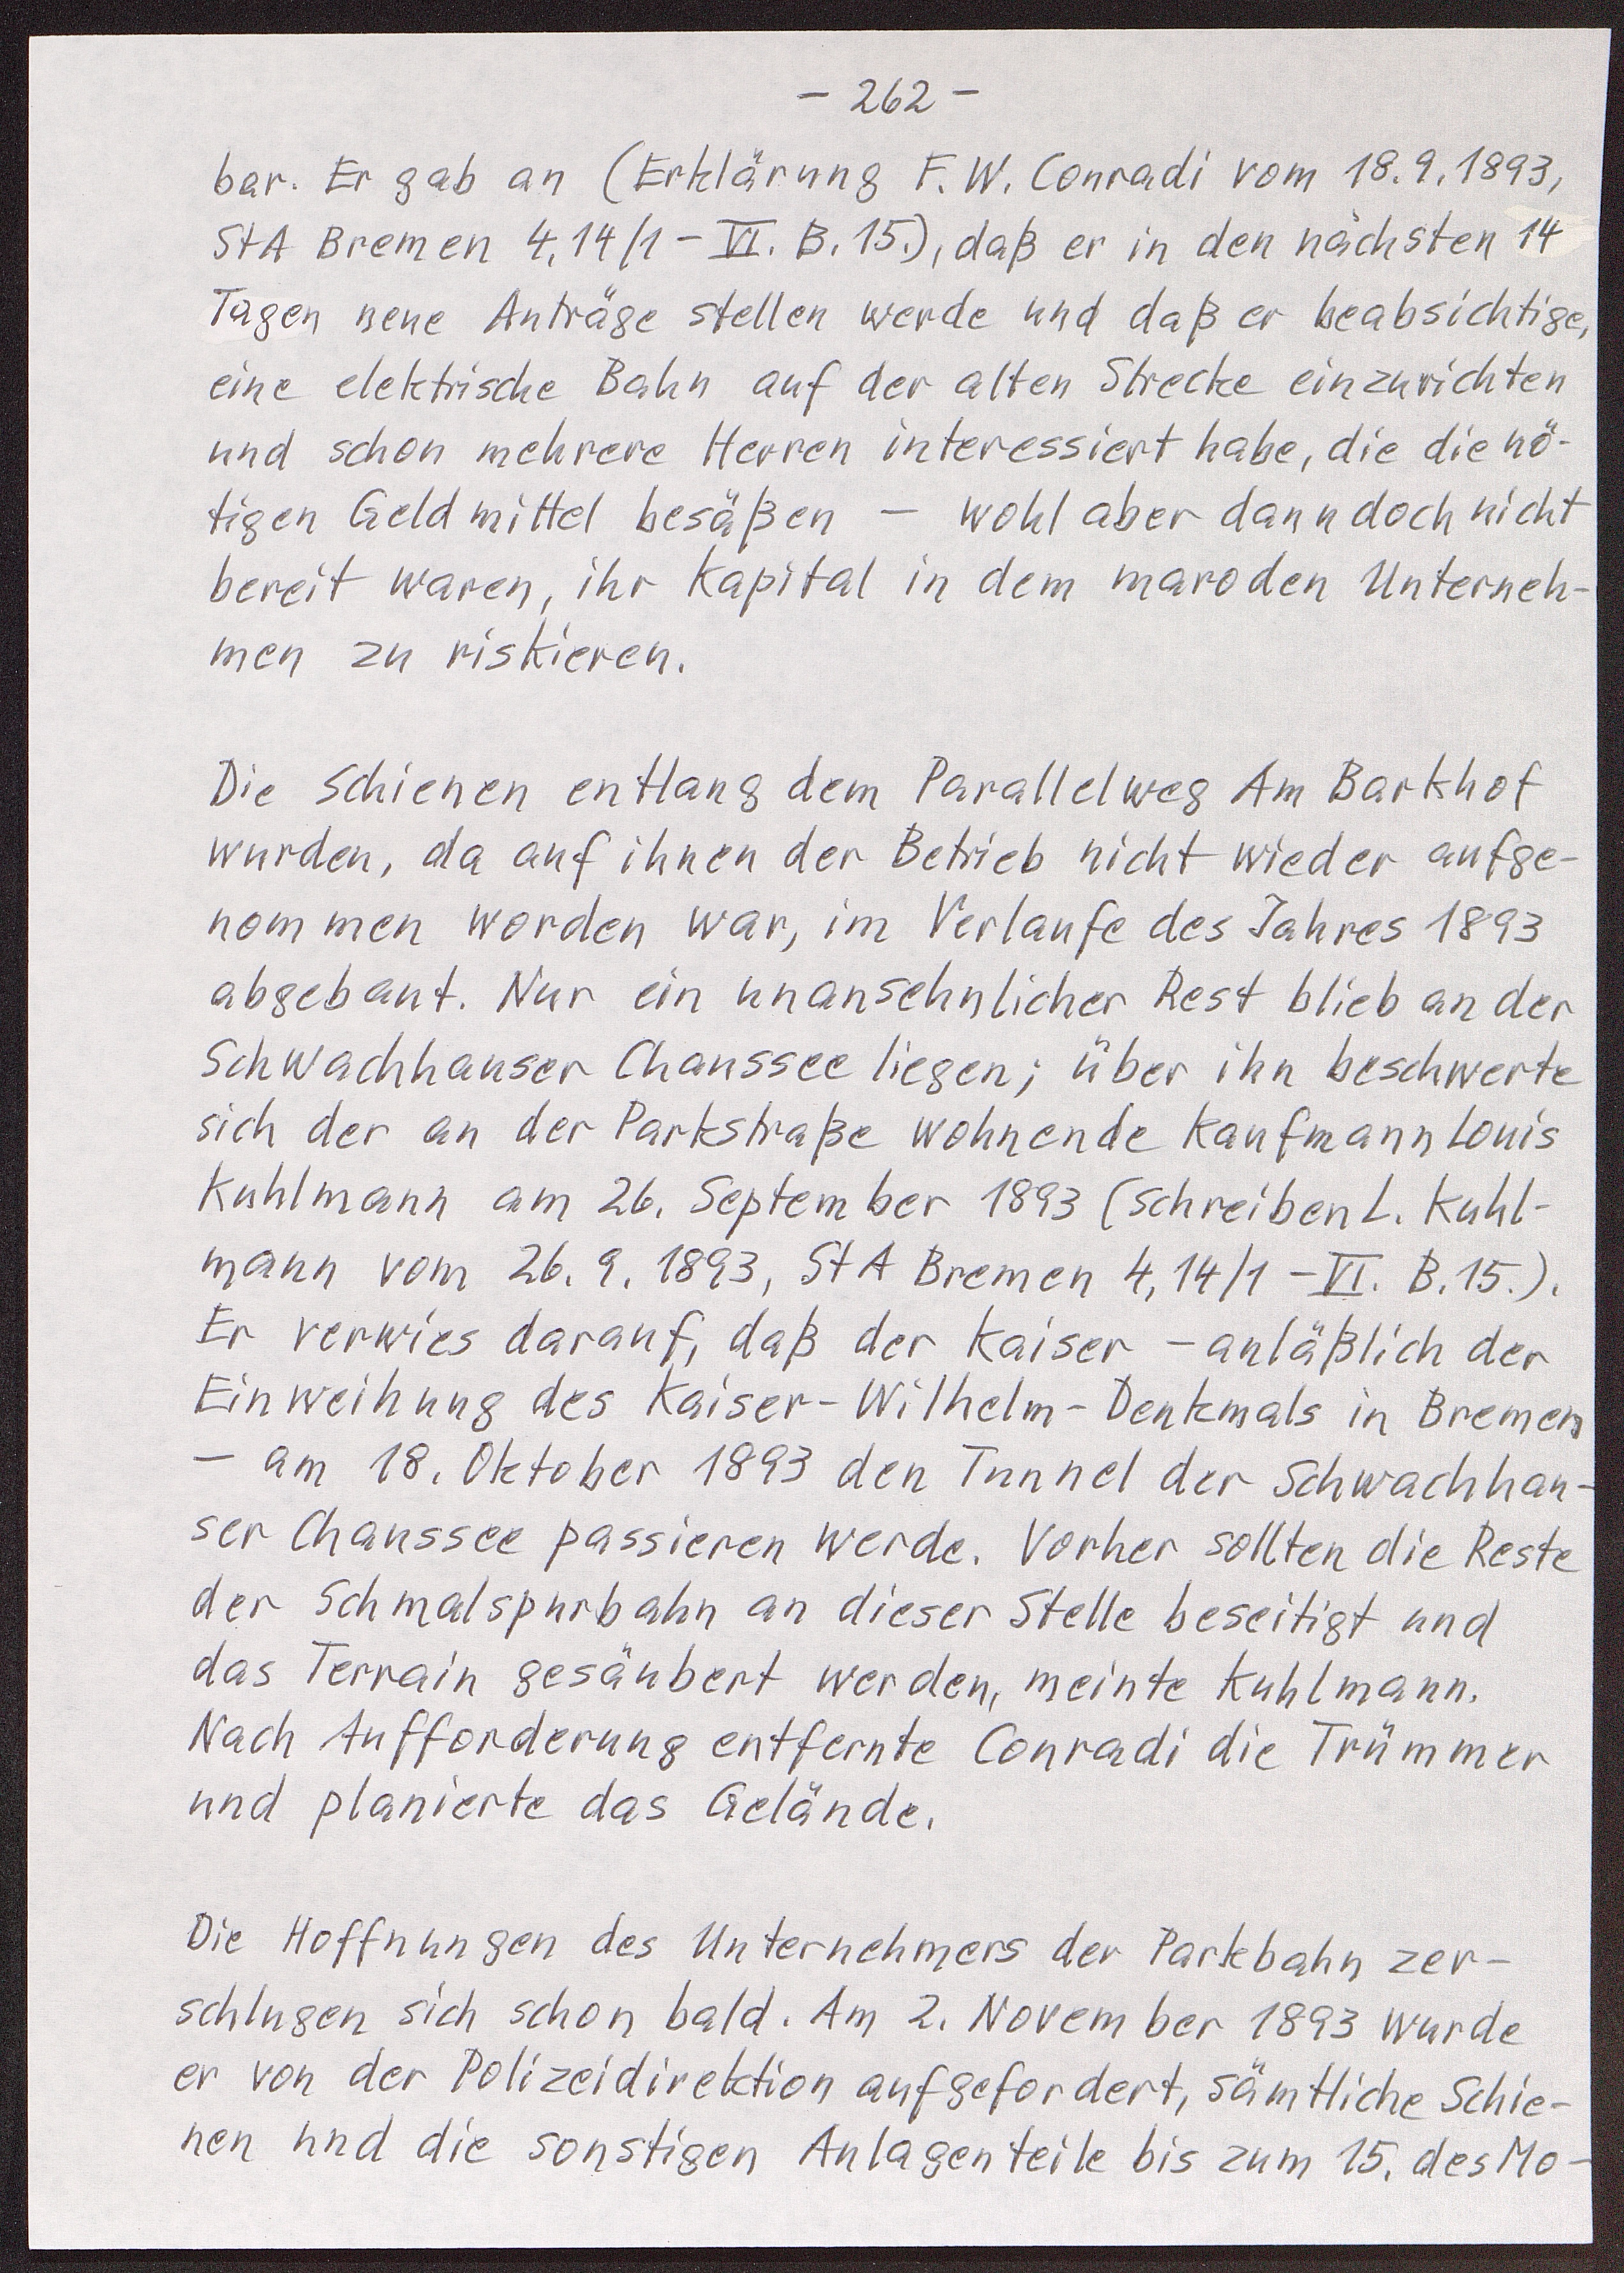 - 262 -
bar. Er gab an (Erklärung F. W. Conradi vom 18.9.1893,
StA Bremen 4,14/1 - VI. B. 15.), daß er in den nächsten 14
Tagen neue Anträge stellen werde und daß er beabsichtige,
eine elektrische Bahn auf der alten Strecke einzurichten
und schon mehrere Herren interessiert habe, die die nö-
tigen Geldmittel besäßen - wohl aber dann doch nicht
bereit waren, ihr Kapital in dem maroden Unterneh-
men zu riskieren.
Die Schienen entlang dem Parallelweg Am Barkhof
wurden, da auf ihnen der Betrieb nicht wieder aufge-
nommen worden war, im Verlaufe des Jahres 1893
abgebaut. Nur ein unansehnlicher Rest blieb an der
Schwachhauser Chaussee liegen; über ihn beschwerte
sich der an der Parkstraße wohnende Kaufmann Louis
Kuhlmann am 26. September 1893 (Schreiben L. Kuhl-
mann vom 26.9.1893, StA Bremen 4,14/1 - VI. B. 15.).
Er verwies darauf, daß der Kaiser - anläßlich der
Einweihung des Kaiser-Wilhelm-Denkmals in Bremen
- am 18. Oktober 1893 den Tunnel der Schwachhau-
ser Chaussee passieren werde. Vorher sollten die Reste
der Schmalspurbahn an dieser Stelle beseitigt und
das Terrain gesäubert werden, meinte Kuhlmann.
Nach Aufforderung entfernte Conradi die Trümmer
und planierte das Gelände.
Die Hoffnungen des Unternehmers der Parkbahn zer-
schlugen sich schon bald. Am 2. November 1893 wurde
er von der Polizeidirektion aufgefordert, sämtliche Schie-
nen und die sonstigen Anlagenteile bis zum 15. des Mo-